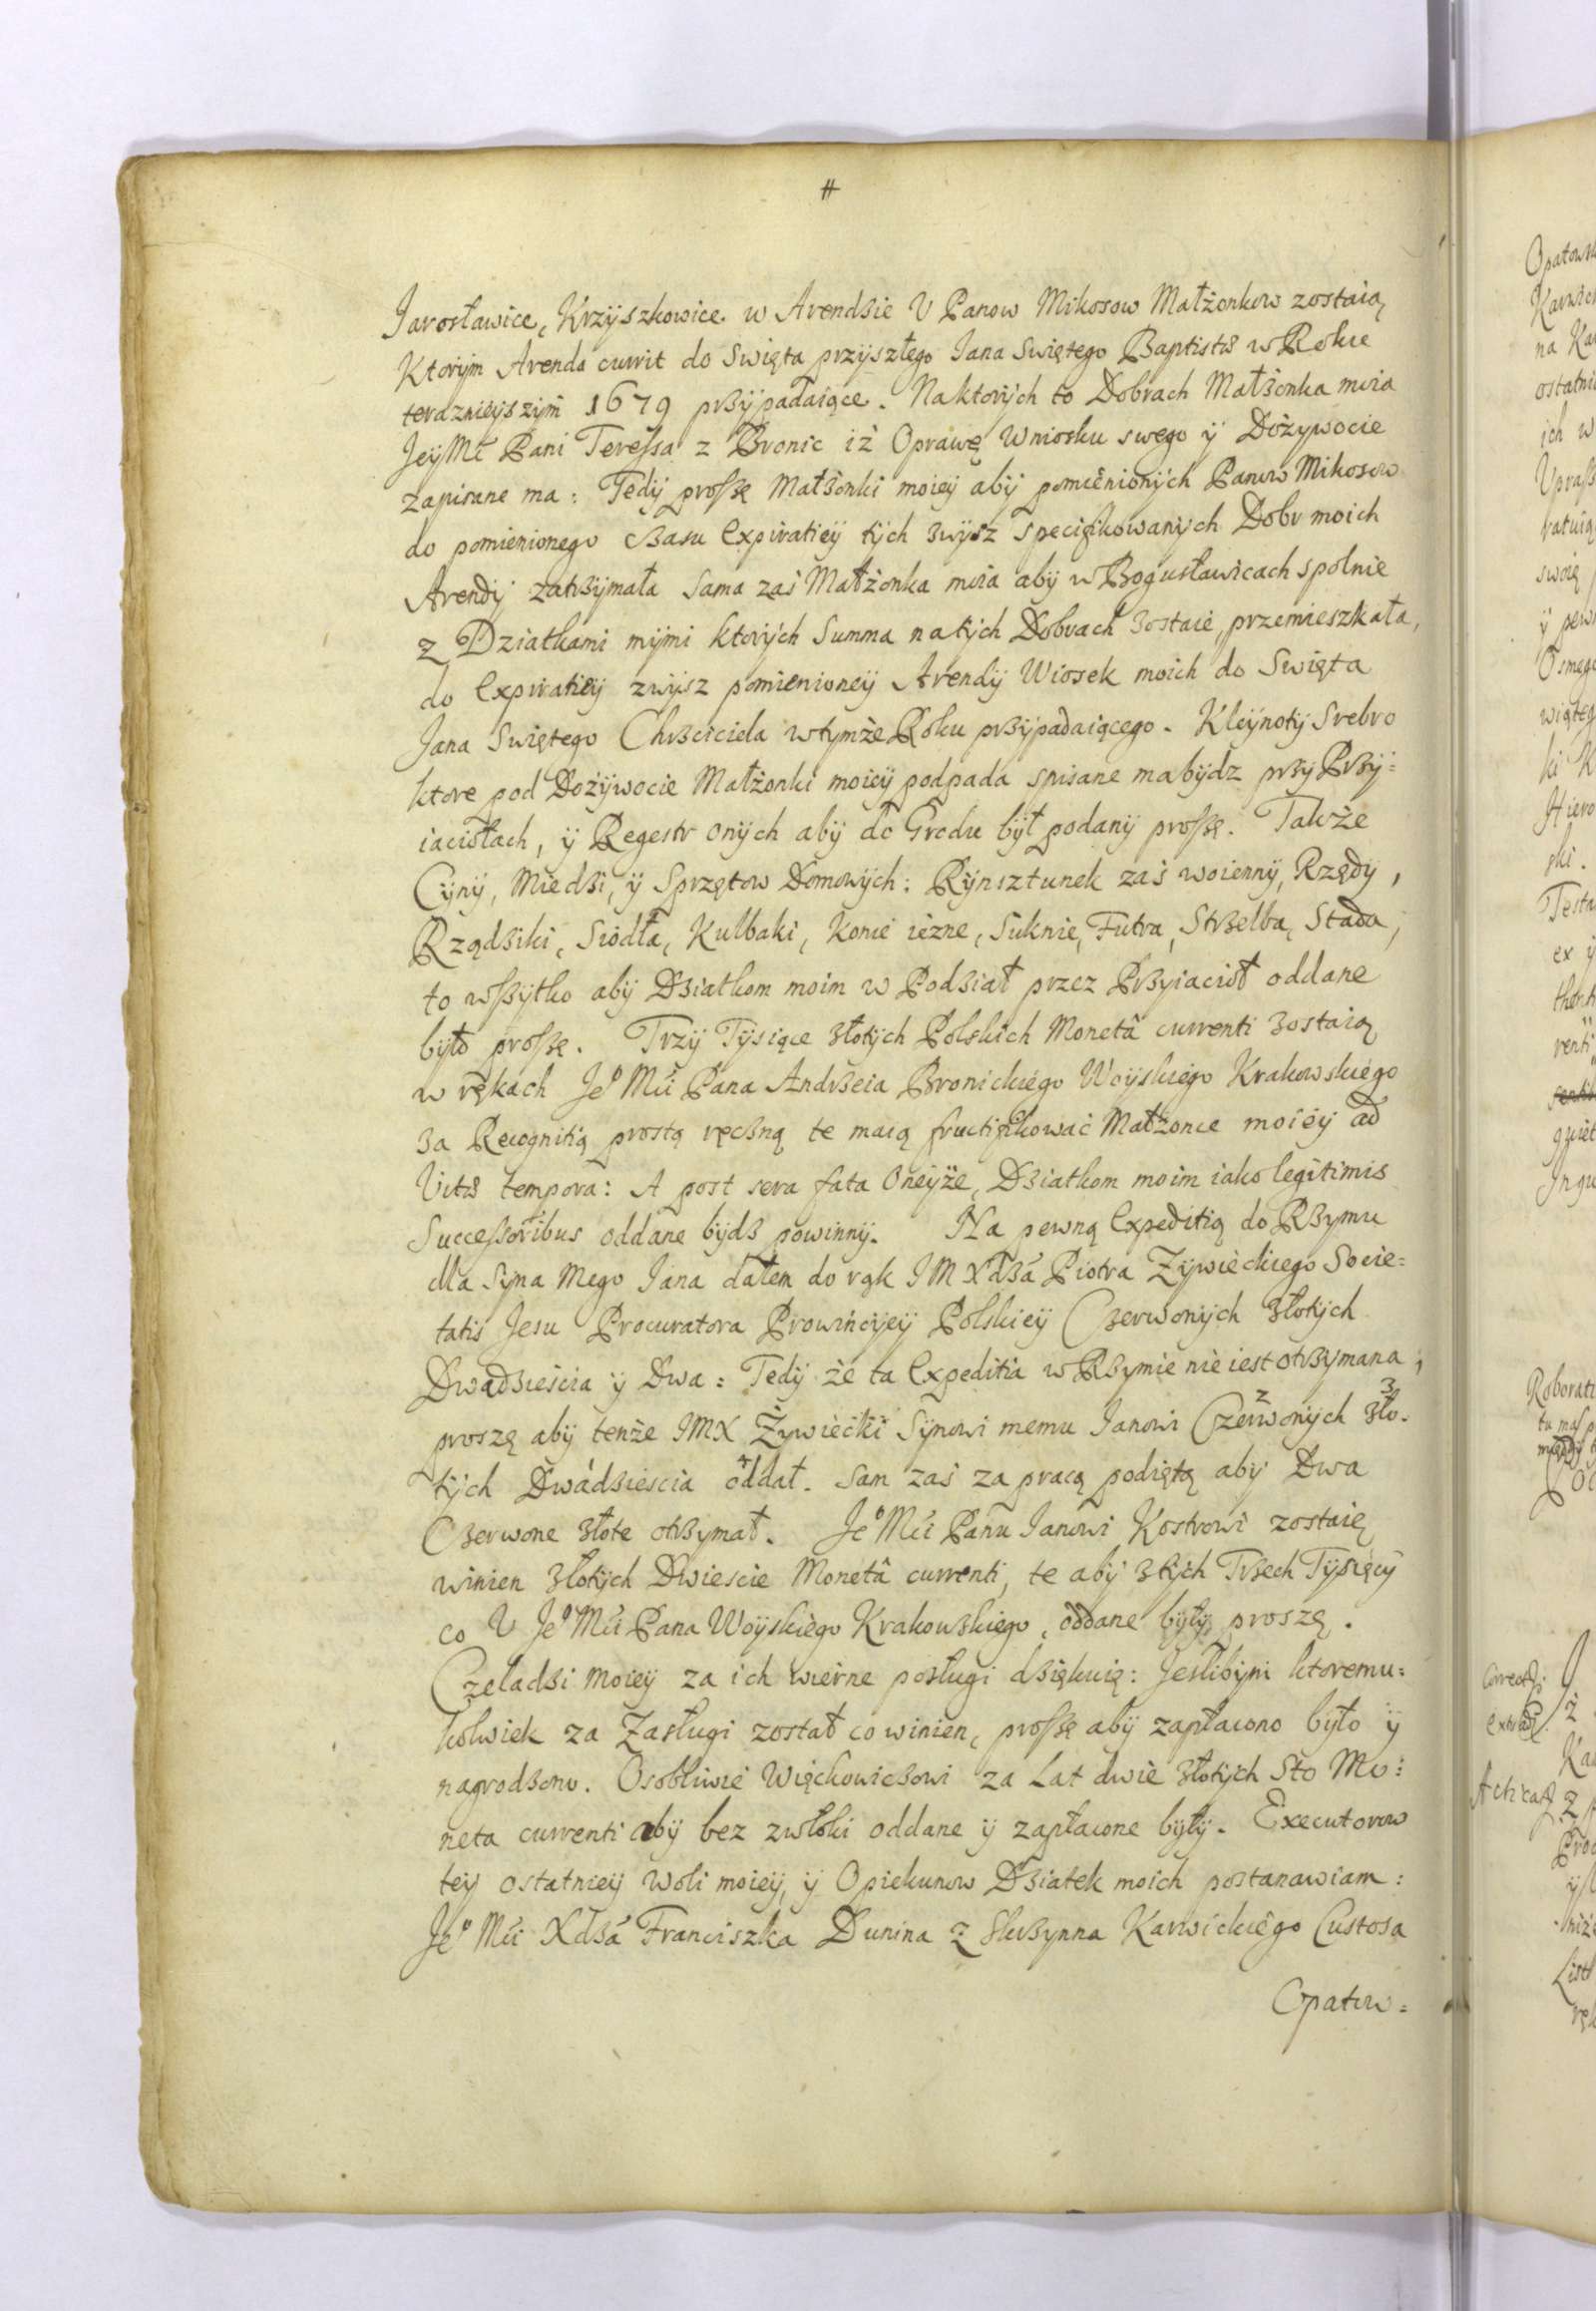 #
Jarosławice, Krzyszkowice w Arendzie U Panow Mikosow Małżonkow zostaią
Ktorym Arenda currit do Swięta przyszłego Jana Swiętego Baptistæ w Roku
teraznieyszym 1679 przypadaiące. Na ktorych to Dobrach Małżonka moia
JeyMć Pani Teressa z Bronic iż Oprawę Wniosku swego y Dożywocie
zapisane ma: Tedy prosszę Małżonki moiey aby pomienionych Panow Mikosow
do pomienionego Czasu Expiratiey tych zwysz specifikowanych Dobr moich
Arendy zatrzymała sama zaś Małżonka moia aby w Bogusławicach spolnie
z Dziatkami mymi ktorych Summa na tych Dobrach zostaie, przemieszkała,
do Expiratiey zwysz pomienioney Arendy Wiosek moich do Swięta
Jana Swiętego Chrzciciela wtymże Roku przypadaiącego. Kleynoty Srebro
ktore pod Dożywocie Małżonki moiey podpada spisane ma bydz przy Przy=
iaciołach, y Regestr onych aby do Grodu był podany prosszę. Także
Cyny, Miedzi, y Sprzętow Domowych: Rynsztunek zaś woienny, Rzędy,
Rządziki, Siodła, Kulbaki, Konie iezne, Suknie, Futra, Strzelba, Stada,
to wszytko aby Dziatkom moim w Podział przez Przyiacioł oddane
było prosszę. Trzy Tysiące złotych Polskich Monetâ currenti zostaią
w rękach Jeº Mći Pana Andrzeia Bronickiego Woyskiego Krakowskiego
za Recognitią prostą ręczną te maią fructifikować Małżonce moiey ad
Vitæ tempora: A post sera fata Oneyże, Dziatkom moim iako legitimis
Successoribus oddane bydz powinny. Na pewną Expeditią do Rzymu
dla Syna Mego Jana dałem do rąk JM Xdza Piotra Zywieckiego Socie=
tatis Jesu Procuratora Prowincyey Polskiey Czerwonych złotych
Dwadzieścia y Dwa: Tedy że ta Expeditia w Rzymie nie iest otrzymana,
proszę aby tenże JMX Żywiecki Synowi memu Janowi Czerwonych zło-
tych Dwadziescia oddał. sam zaś za pracą podiętą aby Dwa
Czerwone złote otrzymał. Jeº Mći Panu Janowi Kostrowi zostaię
winien złotych Dwiescie Monetâ currenti, te aby z tych Trzech Tysięcy
co U Jeº Mći Pana Woyskiego Krakowskiego, oddane były proszę.
Czeladzi moiey za ich wierne posługi dziękuię: Jeslibym ktoremu=
kolwiek za Zasługi został co winien, prosszę aby zapłacono było y
nagrodzono. Osobliwie Więckowiczowi za Lat dwie złotych Sto Mo=
neta currenti aby bez zwłoki oddane y zapłacone były. Executorow
tey ostatniey woli moiey, y Opiekunow Dziatek moich postanawiam:
Jeº Mći Xdza Franciszka Dunina z Skrzynna Karwickiego Custosa
Opatow=